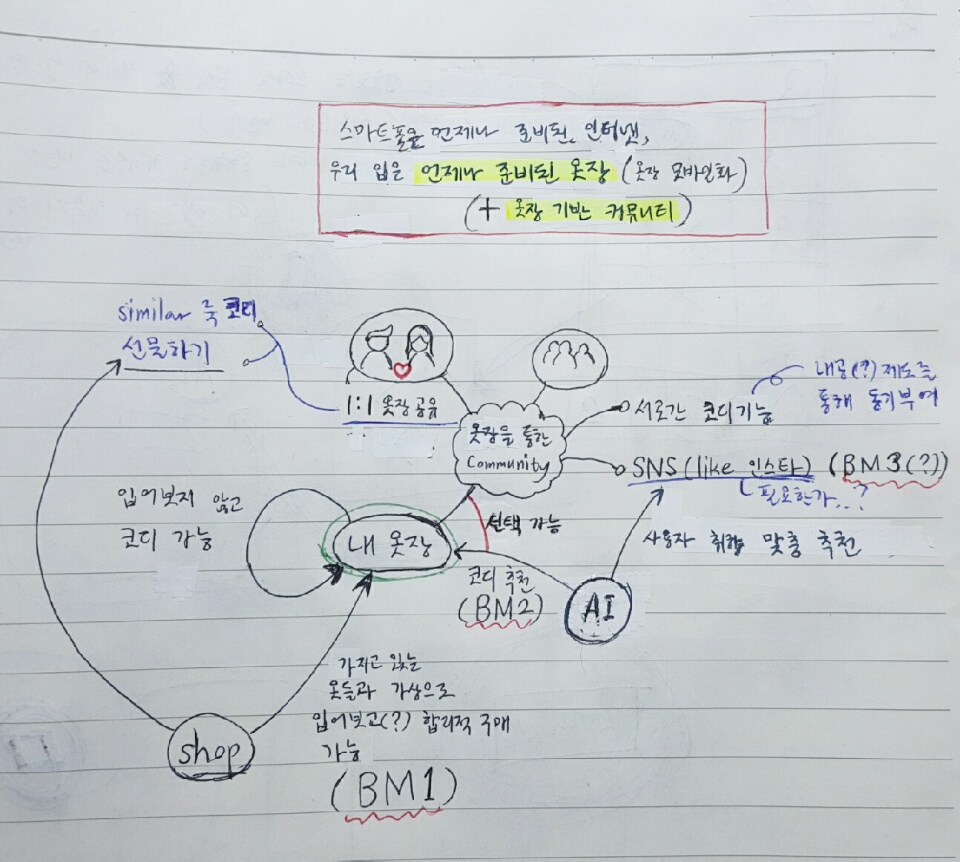 스마트폰은 언제나 준비된 인터넷,
우리 앱은 언제나 준비된 옷장 (옷장 모바일화)
(+ 옷장 기반 커뮤니티)
similar 룩 코디
선물하기
1:1 옷장 공유
옷장을 통한
Community
서로간 코디 기능
내공(?) 제도를
통해 동기부여
SNS (like 인스타) (BM3(?))
필요한가...?
사용자 취향 맞춤 추천
입어보지 않고
코디 가능
내 옷장
선택 가능
코디 추천
(BM2)
AI
가지고 있는
옷들과 가상으로
입어보고(?) 합리적 구매
가능
(BM1)
shop